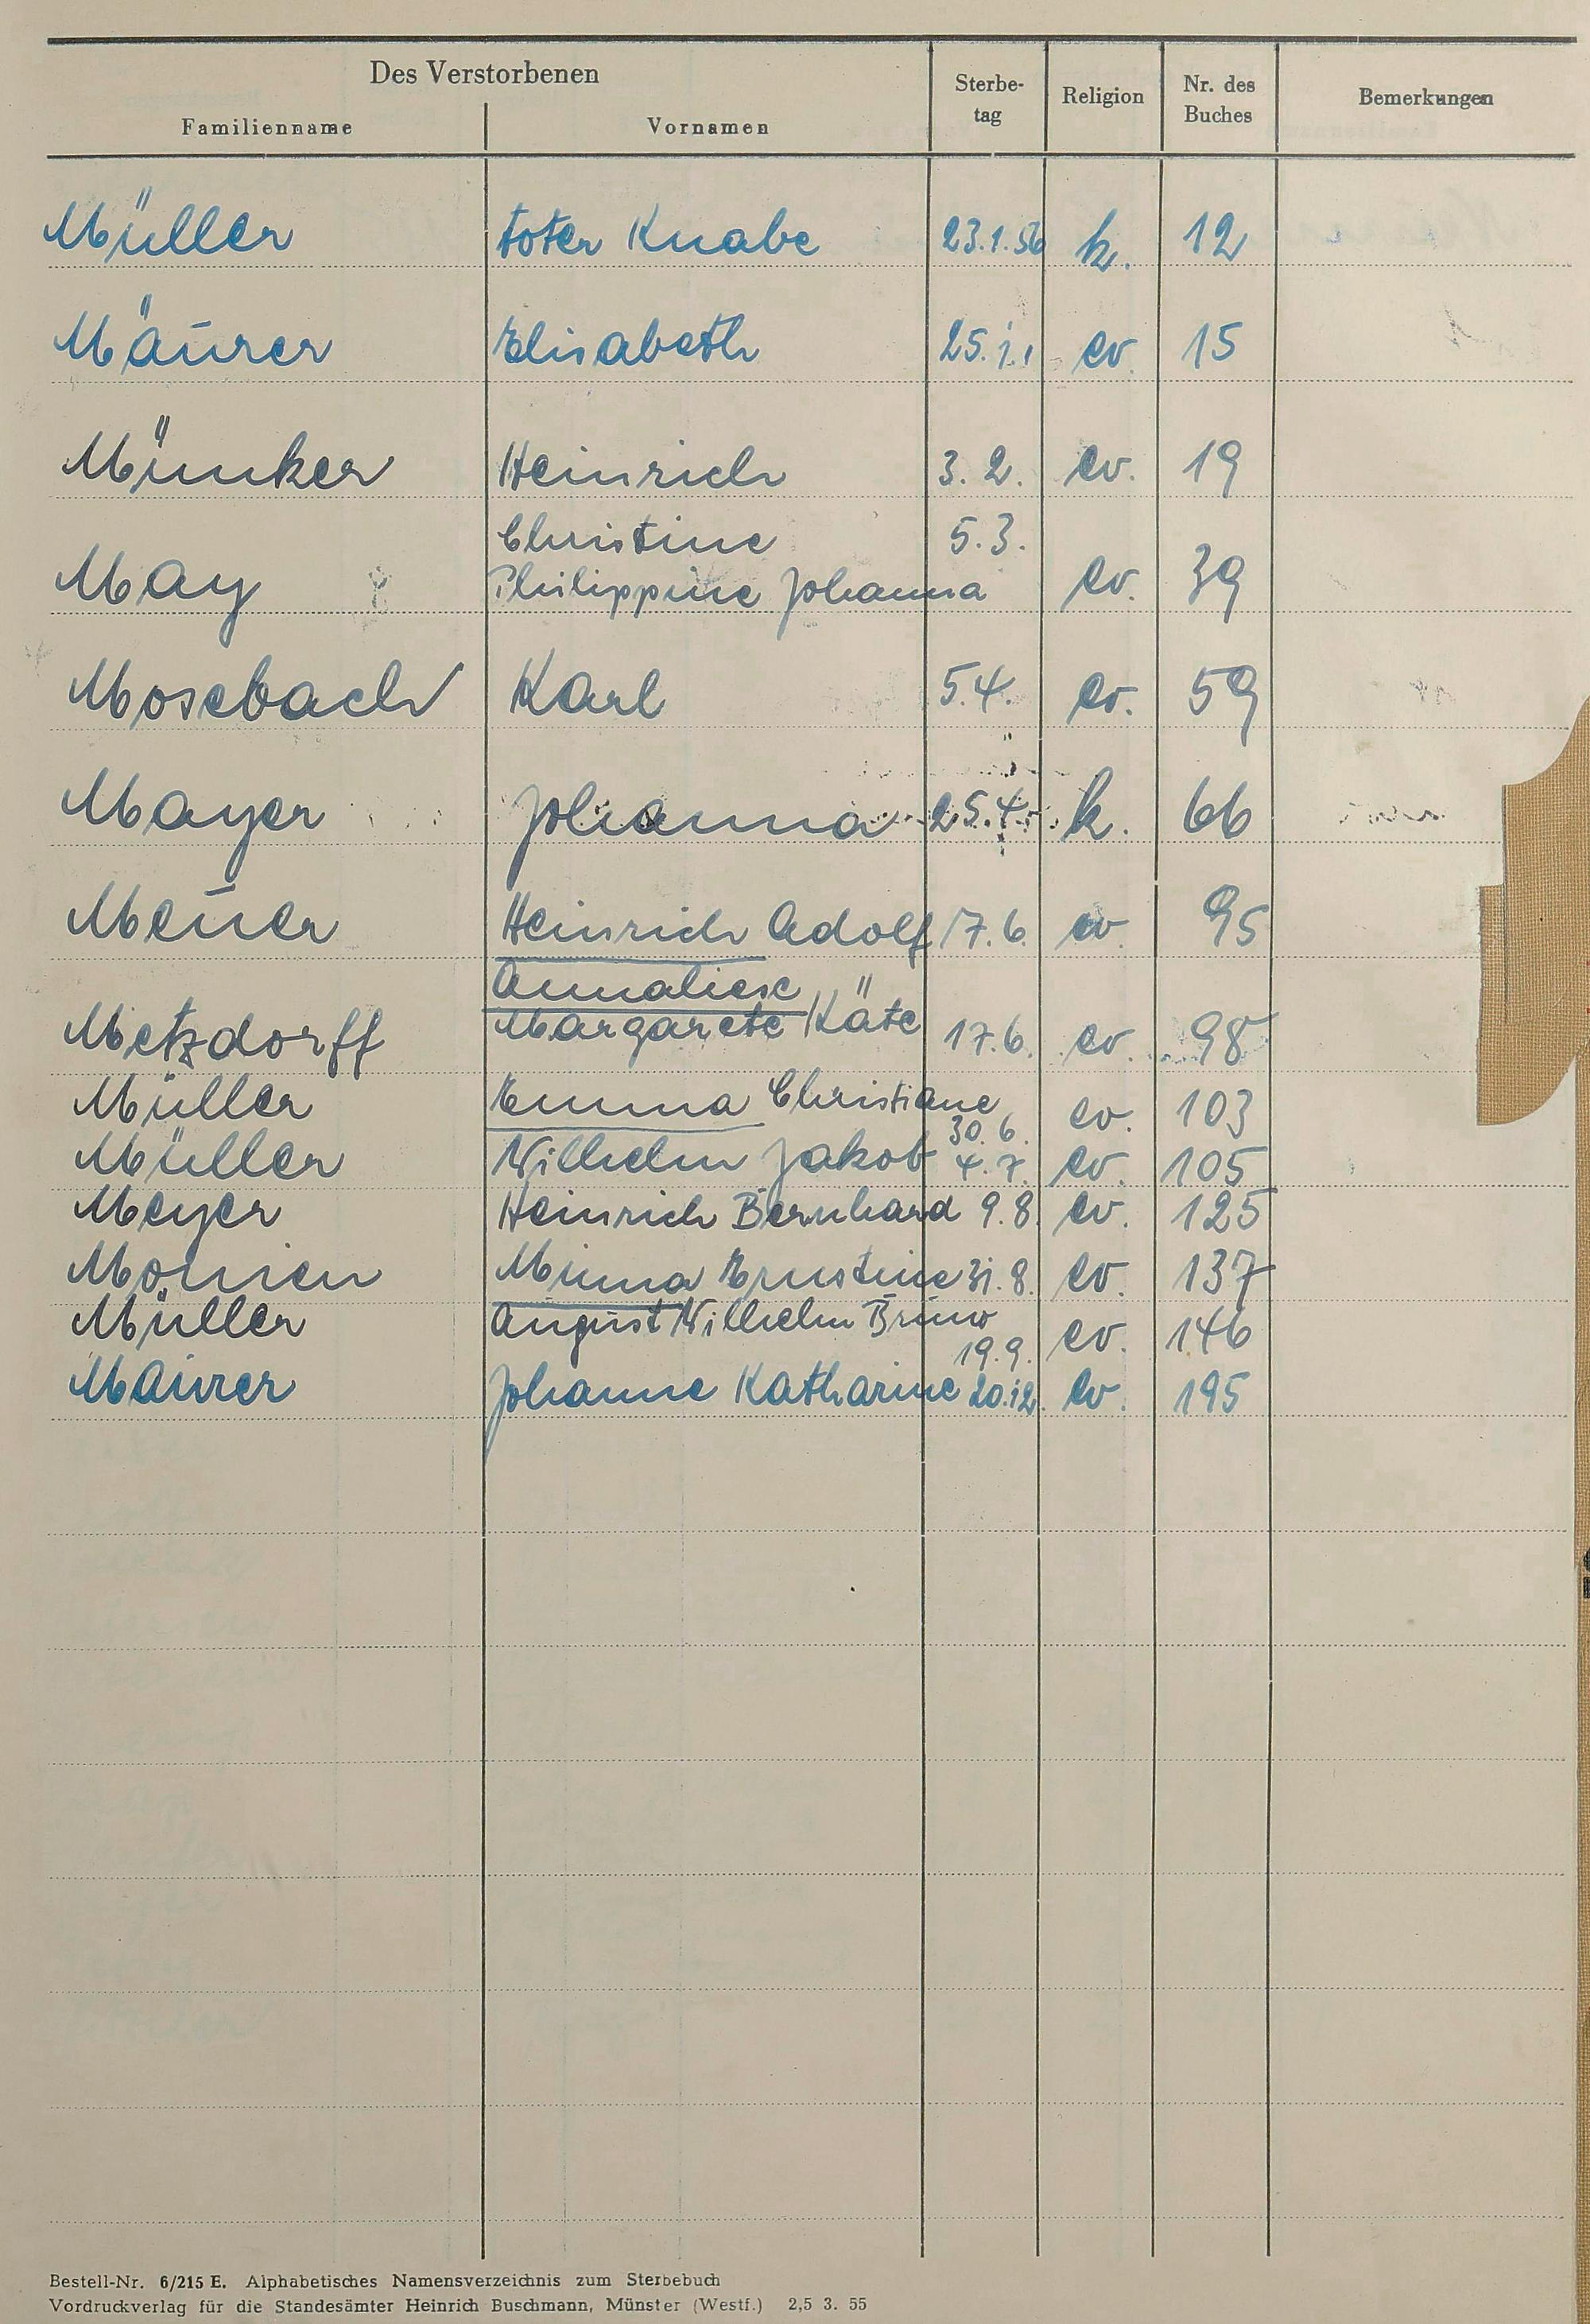 Des Verstorbenen
Familienname Vornamen Sterbe-tag Religion Nr. des Buches Bemerkungen
Müller toter Knabe 23.1.56 k. 12
Mäurer Elisabeth 25.1. ev. 15
Münker Heinrich 3.2. ev. 19
Christine 5.3.
May Philippine Johanna ev. 39
Mosebach Karl 5.4. ev. 59
Mayer Johanna 25.4. k. 66
Meuer Heinrich Adolf 17.6. ev. 95
Annaliese
Metzdorff Margarete Käte 17.6. ev. 98
Müller Emma Christiane 30.6. ev. 103
Müller Wilhelm Jakob 4.7. ev. 105
Meyer Heinrich Bernhard 9.8. ev. 125
Monien Minna Ernstine 31.8. ev. 137
Müller August Wilhelm Bruno 19.9. ev. 146
Maurer Johanne Katharine 20.12. ev. 195
Bestell-Nr. 6/215 E. Alphabetisches Namensverzeichnis zum Sterbebuch
Vordruckverlag für die Standesämter Heinrich Buschmann, Münster (Westf.) 2,5 3. 55